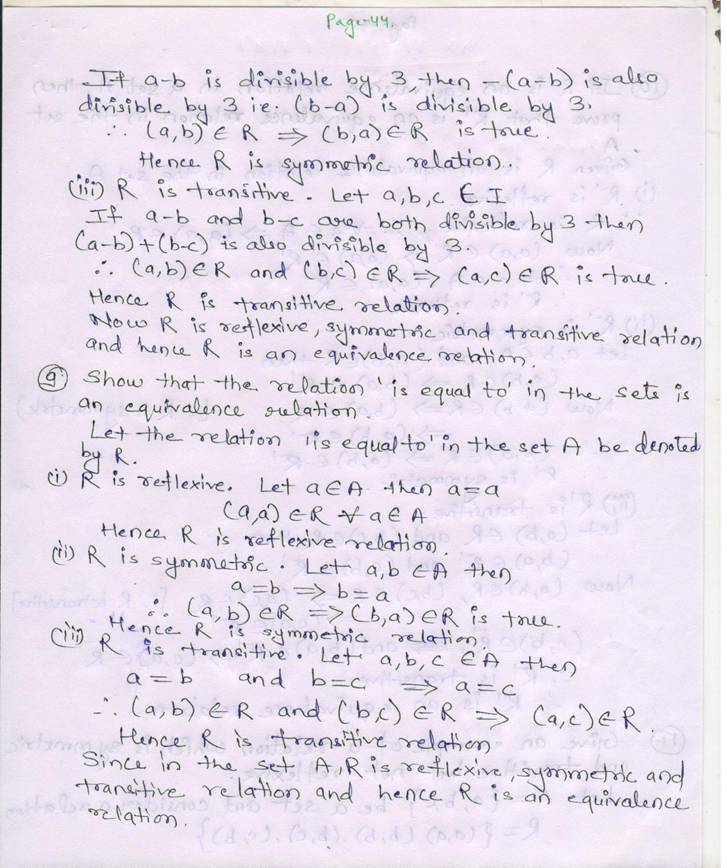 Page-44.
If a-b is divisible by 3 then -(a-b) is also
divisible by 3 ie. (b-a) is divisible by 3.
∴ (a,b) ∈ R ⇒ (b,a) ∈ R is true.
Hence R is symmetric relation.
(iii) R is transitive. Let a,b,c ∈ I
If a-b and b-c are both divisible by 3 then
(a-b)+(b-c) is also divisible by 3.
∴ (a,b) ∈ R and (b,c) ∈ R ⇒ (a,c) ∈ R is true.
Hence R is transitive relation.
Now R is reflexive, symmetric and transitive relation
and hence R is an equivalence relation
9 Show that the relation 'is equal to' in the sets is
an equivalence relation.
Let the relation 'is equal to' in the set A be denoted
by R.
(i) R is reflexive. Let a ∈ A then a=a
(a,a) ∈ R ∀ a ∈ A
Hence R is reflexive relation.
(ii) R is symmetric. Let a,b ∈ A then
a=b ⇒ b=a
∴ (a,b) ∈ R ⇒ (b,a) ∈ R is true.
Hence R is symmetric relation.
(iii) R is transitive. Let a,b,c ∈ A then
a=b and b=c ⇒ a=c
∴ (a,b) ∈ R and (b,c) ∈ R ⇒ (a,c) ∈ R.
Hence R is transitive relation
Since in the set A, R is reflexive, symmetric and
transitive relation and hence R is an equivalence
relation.